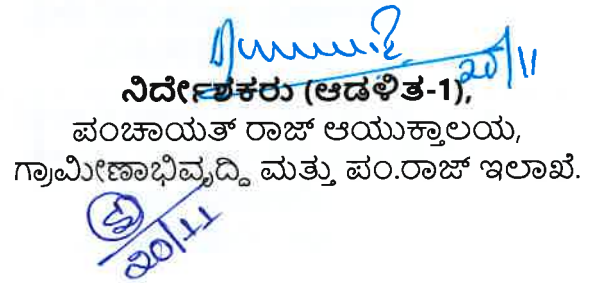 20/11
ನಿರ್ದೇಶಕರು (ಆಡಳಿತ-1),
ಪಂಚಾಯತ್ ರಾಜ್ ಆಯುಕ್ತಾಲಯ,
ಗ್ರಾಮೀಣಾಭಿವೃದ್ದಿ ಮತ್ತು ಪಂ.ರಾಜ್ ಇಲಾಖೆ.
20/11